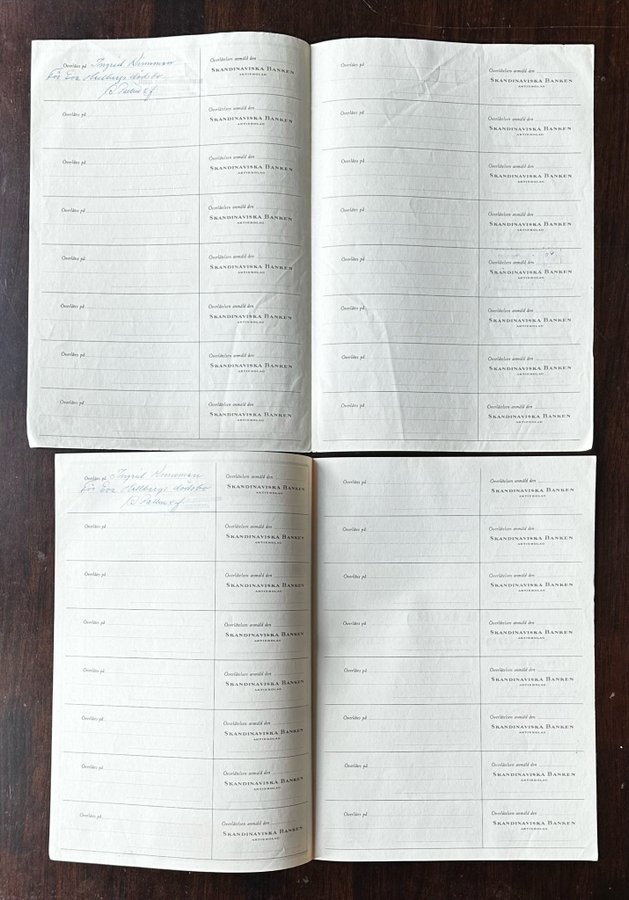 Överlåtes på Ingrid
Överlåtelsen anmäld den
SKANDINAVISKA BANKEN
AKTIEBOLAG
för Eva Hallbergs dödsbo
Överlåtes på
Överlåtelsen anmäld den
SKANDINAVISKA BANKEN
AKTIEBOLAG
Överlåtes på
Överlåtelsen anmäld den
SKANDINAVISKA BANKEN
AKTIEBOLAG
Överlåtes på
Överlåtelsen anmäld den
SKANDINAVISKA BANKEN
AKTIEBOLAG
Överlåtes på
Överlåtelsen anmäld den
SKANDINAVISKA BANKEN
AKTIEBOLAG
Överlåtes på
Överlåtelsen anmäld den
SKANDINAVISKA BANKEN
AKTIEBOLAG
Överlåtes på
Överlåtelsen anmäld den
SKANDINAVISKA BANKEN
AKTIEBOLAG
Överlåtes på
Överlåtelsen anmäld den
SKANDINAVISKA BANKEN
AKTIEBOLAG
Överlåtes på
Överlåtelsen anmäld den
SKANDINAVISKA BANKEN
AKTIEBOLAG
Överlåtes på
Överlåtelsen anmäld den
SKANDINAVISKA BANKEN
AKTIEBOLAG
Överlåtes på
Överlåtelsen anmäld den
SKANDINAVISKA BANKEN
AKTIEBOLAG
Överlåtes på
Överlåtelsen anmäld den
SKANDINAVISKA BANKEN
AKTIEBOLAG
Överlåtes på
Överlåtelsen anmäld den
SKANDINAVISKA BANKEN
AKTIEBOLAG
Överlåtes på
Överlåtelsen anmäld den
SKANDINAVISKA BANKEN
AKTIEBOLAG
Överlåtes på
Överlåtelsen anmäld den
SKANDINAVISKA BANKEN
AKTIEBOLAG
Överlåtes på
Överlåtelsen anmäld den
SKANDINAVISKA BANKEN
AKTIEBOLAG
Överlåtes på Ingrid
Överlåtelsen anmäld den
SKANDINAVISKA BANKEN
AKTIEBOLAG
för Eva Hallbergs dödsbo
Överlåtes på
Överlåtelsen anmäld den
SKANDINAVISKA BANKEN
AKTIEBOLAG
Överlåtes på
Överlåtelsen anmäld den
SKANDINAVISKA BANKEN
AKTIEBOLAG
Överlåtes på
Överlåtelsen anmäld den
SKANDINAVISKA BANKEN
AKTIEBOLAG
Överlåtes på
Överlåtelsen anmäld den
SKANDINAVISKA BANKEN
AKTIEBOLAG
Överlåtes på
Överlåtelsen anmäld den
SKANDINAVISKA BANKEN
AKTIEBOLAG
Överlåtes på
Överlåtelsen anmäld den
SKANDINAVISKA BANKEN
AKTIEBOLAG
Överlåtes på
Överlåtelsen anmäld den
SKANDINAVISKA BANKEN
AKTIEBOLAG
Överlåtes på
Överlåtelsen anmäld den
SKANDINAVISKA BANKEN
AKTIEBOLAG
Överlåtes på
Överlåtelsen anmäld den
SKANDINAVISKA BANKEN
AKTIEBOLAG
Överlåtes på
Överlåtelsen anmäld den
SKANDINAVISKA BANKEN
AKTIEBOLAG
Överlåtes på
Överlåtelsen anmäld den
SKANDINAVISKA BANKEN
AKTIEBOLAG
Överlåtes på
Överlåtelsen anmäld den
SKANDINAVISKA BANKEN
AKTIEBOLAG
Överlåtes på
Överlåtelsen anmäld den
SKANDINAVISKA BANKEN
AKTIEBOLAG
Överlåtes på
Överlåtelsen anmäld den
SKANDINAVISKA BANKEN
AKTIEBOLAG
Överlåtes på
Överlåtelsen anmäld den
SKANDINAVISKA BANKEN
AKTIEBOLAG